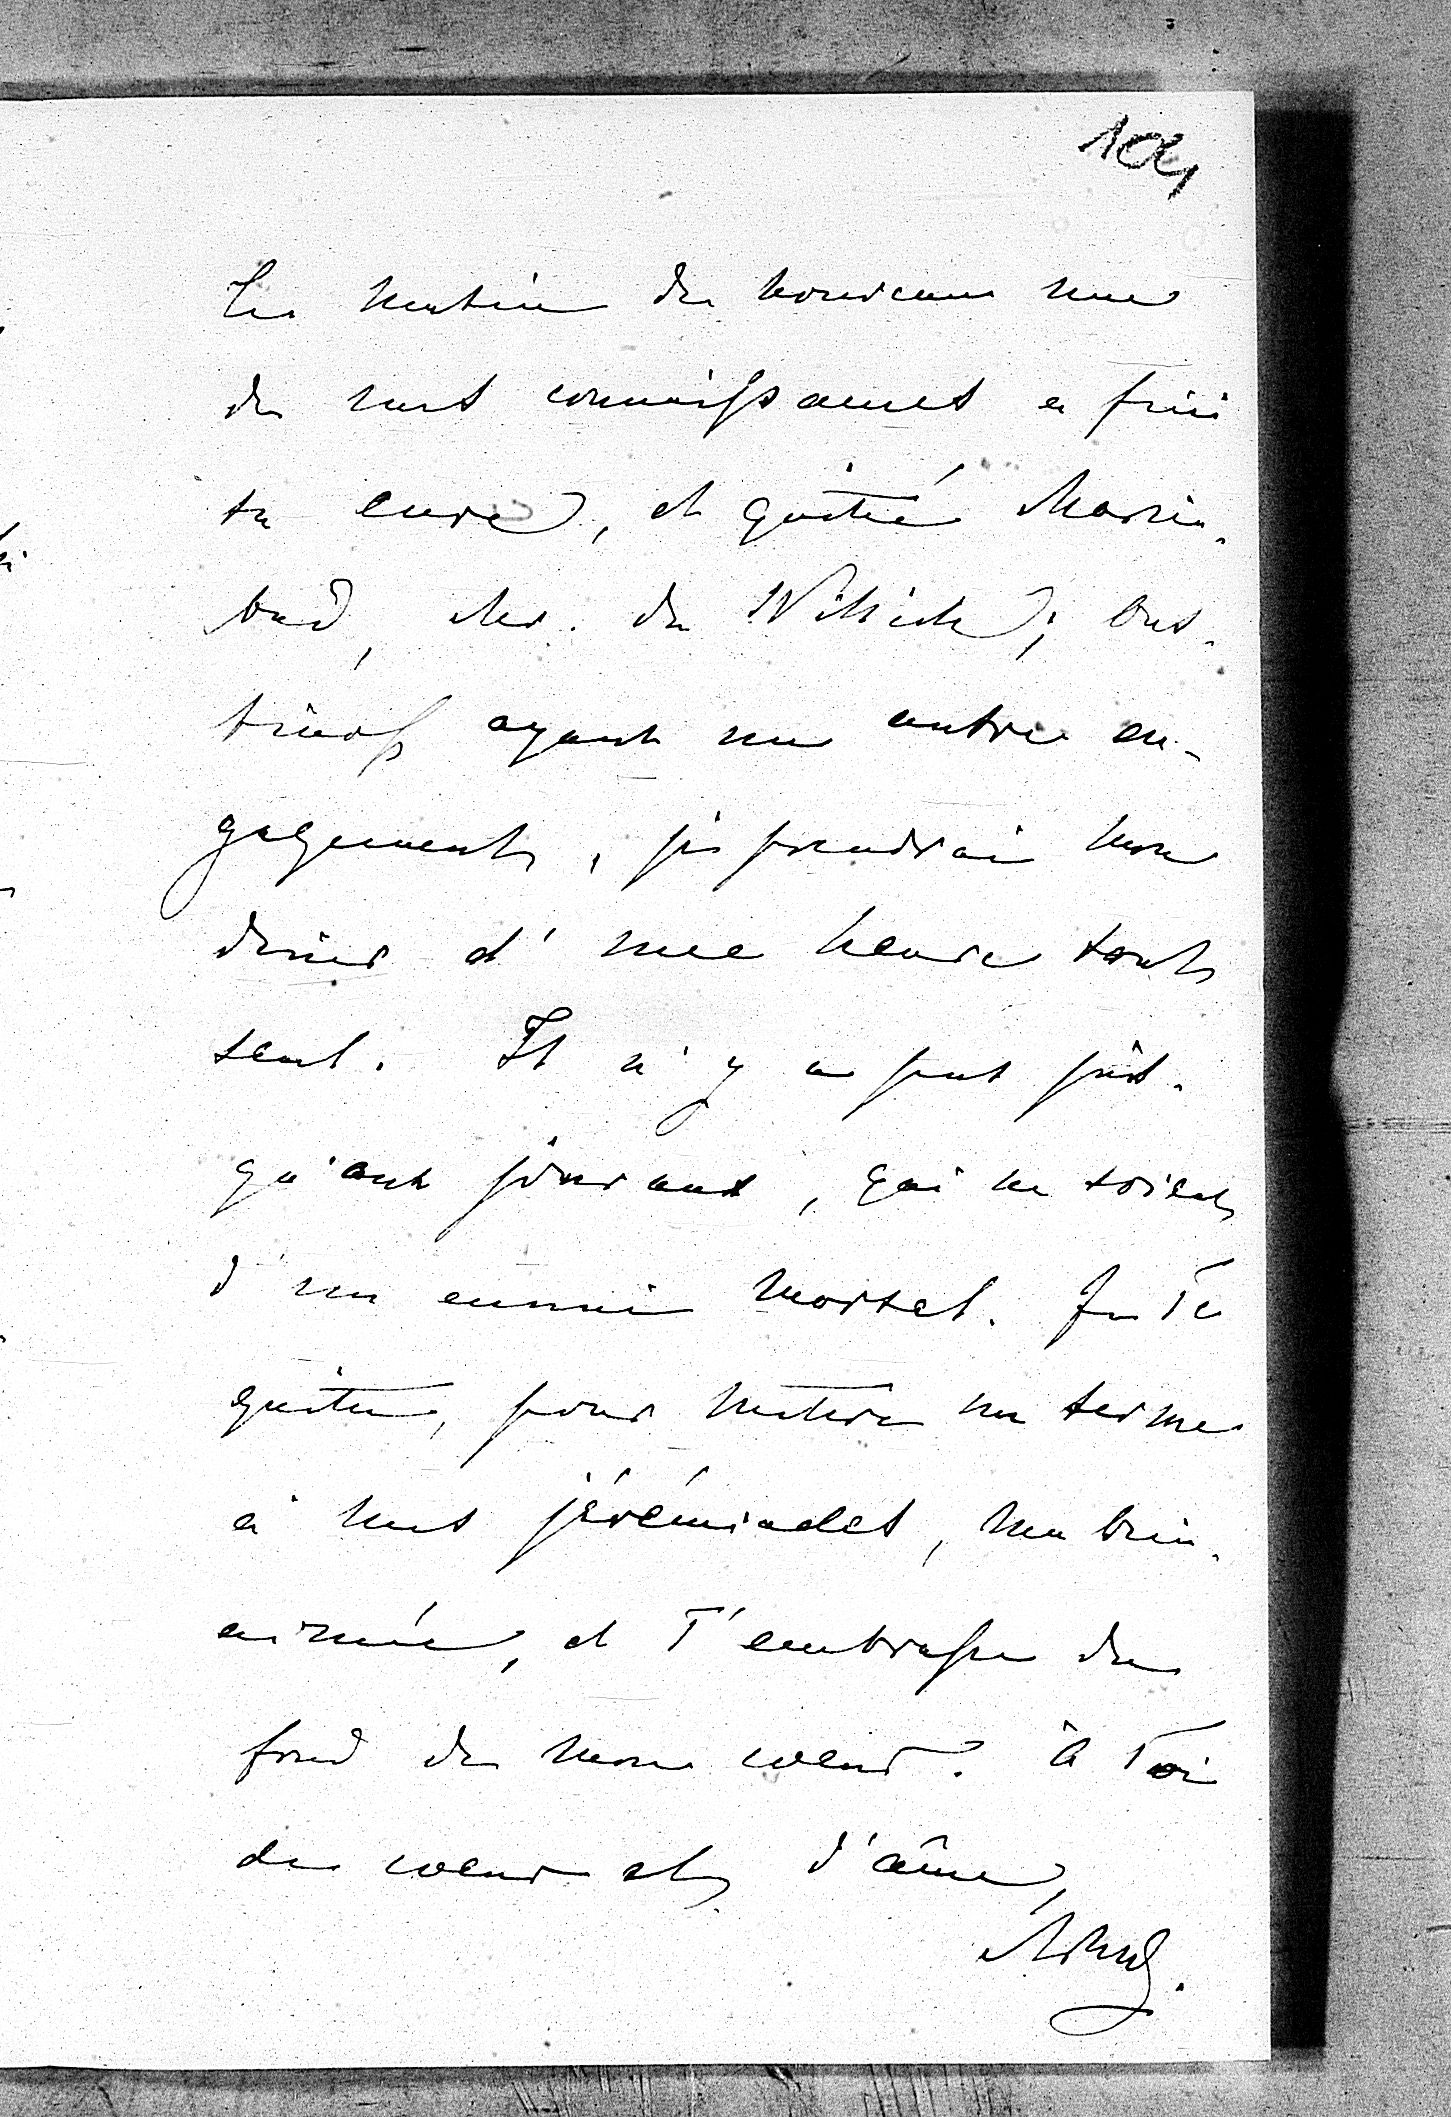 104
Ce matin de nouveau une
de mes connaissances a fini
sa cure, et quitté Marien-
bad, Mr. de Willich; Ous-
tinoff ayant un autre en-
gagement, je prendrai mon
diner d'une heure tout
seul. Il n'y a pas jus-
qu'aux journaux, qui ne soient
d'un ennui mortel. Je Te
quitte, pour mettre un terme
à mes jérémiades, ma bien-
aimée, et T'embrasse du
fond de mon coeur. à Toi
de coeur et d'âme,